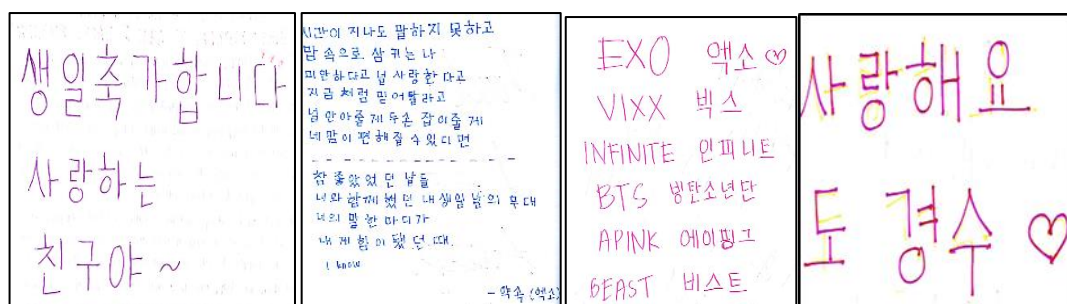 생일축가합니다
사랑하는
친구야 ~
시간이 지나도 말하지 못하고
맘 속으로 삼키는 나
미안하다고 널 사랑한다고
지금 처럼 믿어달라고
널 안아줄게 두손 잡아줄게
네 맘이 편해질 수 있다면
참 좋았었던 날들
너와 함께했던 내 생일날의 무대
너의 말 한마디가
내게 힘이 됐던 때.
I know
- 약속 (엑소)
EXO 엑소 ♡
VIXX 빅스
INFINITE 인피니트
BTS 방탄소년단
APINK 에이핑크
BEAST 비스트
사랑해요
도 경수 ♡